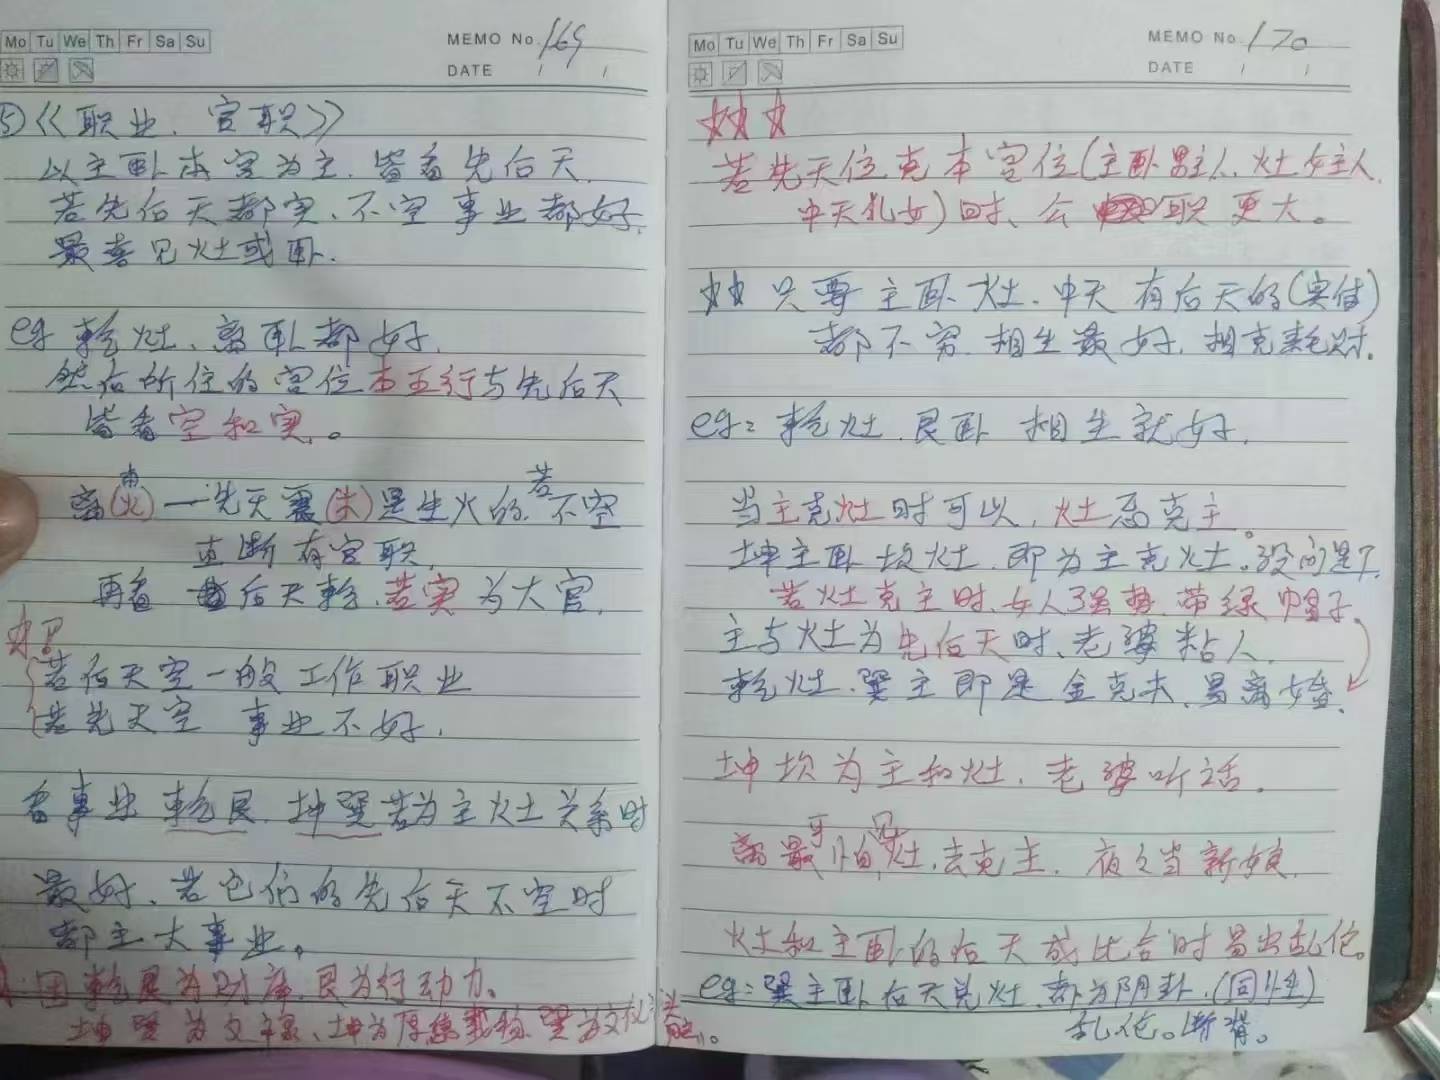 Mo Tu We Th Fr Sa Su
MEMO No. 169
DATE / /
⑤《职业、官职》
以主卧本宫为主.皆看先后天.
若先后天都实、不空事业都好.
最喜见灶或卧.
eg 乾灶、离卧都好.
然后所住的宫位本五行与先后天
皆看空和实。
离(火)一先天震(木)是生火的.若不空
直断有官职.
再看后天乾.若实为大官.
若后天空一般工作职业
若先天空 事业不好.
看事业 乾艮.坤巽若为主灶关系时
最好、若它们的先后天不空时
都主大事业。
因乾艮为财库.艮为行动力。
坤巽为文章、坤为厚德载物.巽为文
Mo Tu We Th Fr Sa Su
MEMO No. 170
DATE / /
若先天位克本宫位(主卧男主人、灶女主人.
中天儿女)时、公职更大。
只要主卧灶.中天有后天的(实住)
都不穷.相生最好.相克耗财.
eg: 乾灶.艮卧 相生就好.
当主克灶时可以,灶忌克主。
坤主卧坎灶.即为主克灶。没问题.
若灶克主时.女人强势.带绿帽子.
主与灶为先后天时、老婆粘人.
乾灶.巽主即是金克木、易离婚.
坤坎为主和灶.老婆听话。
离最怕灶.去克主.夜夜当新娘.
灶和主卧的后天或比合时易出乱伦。
eg: 巽主卧后天兑灶.都为阴卦.(同性)
乱伦。断背。